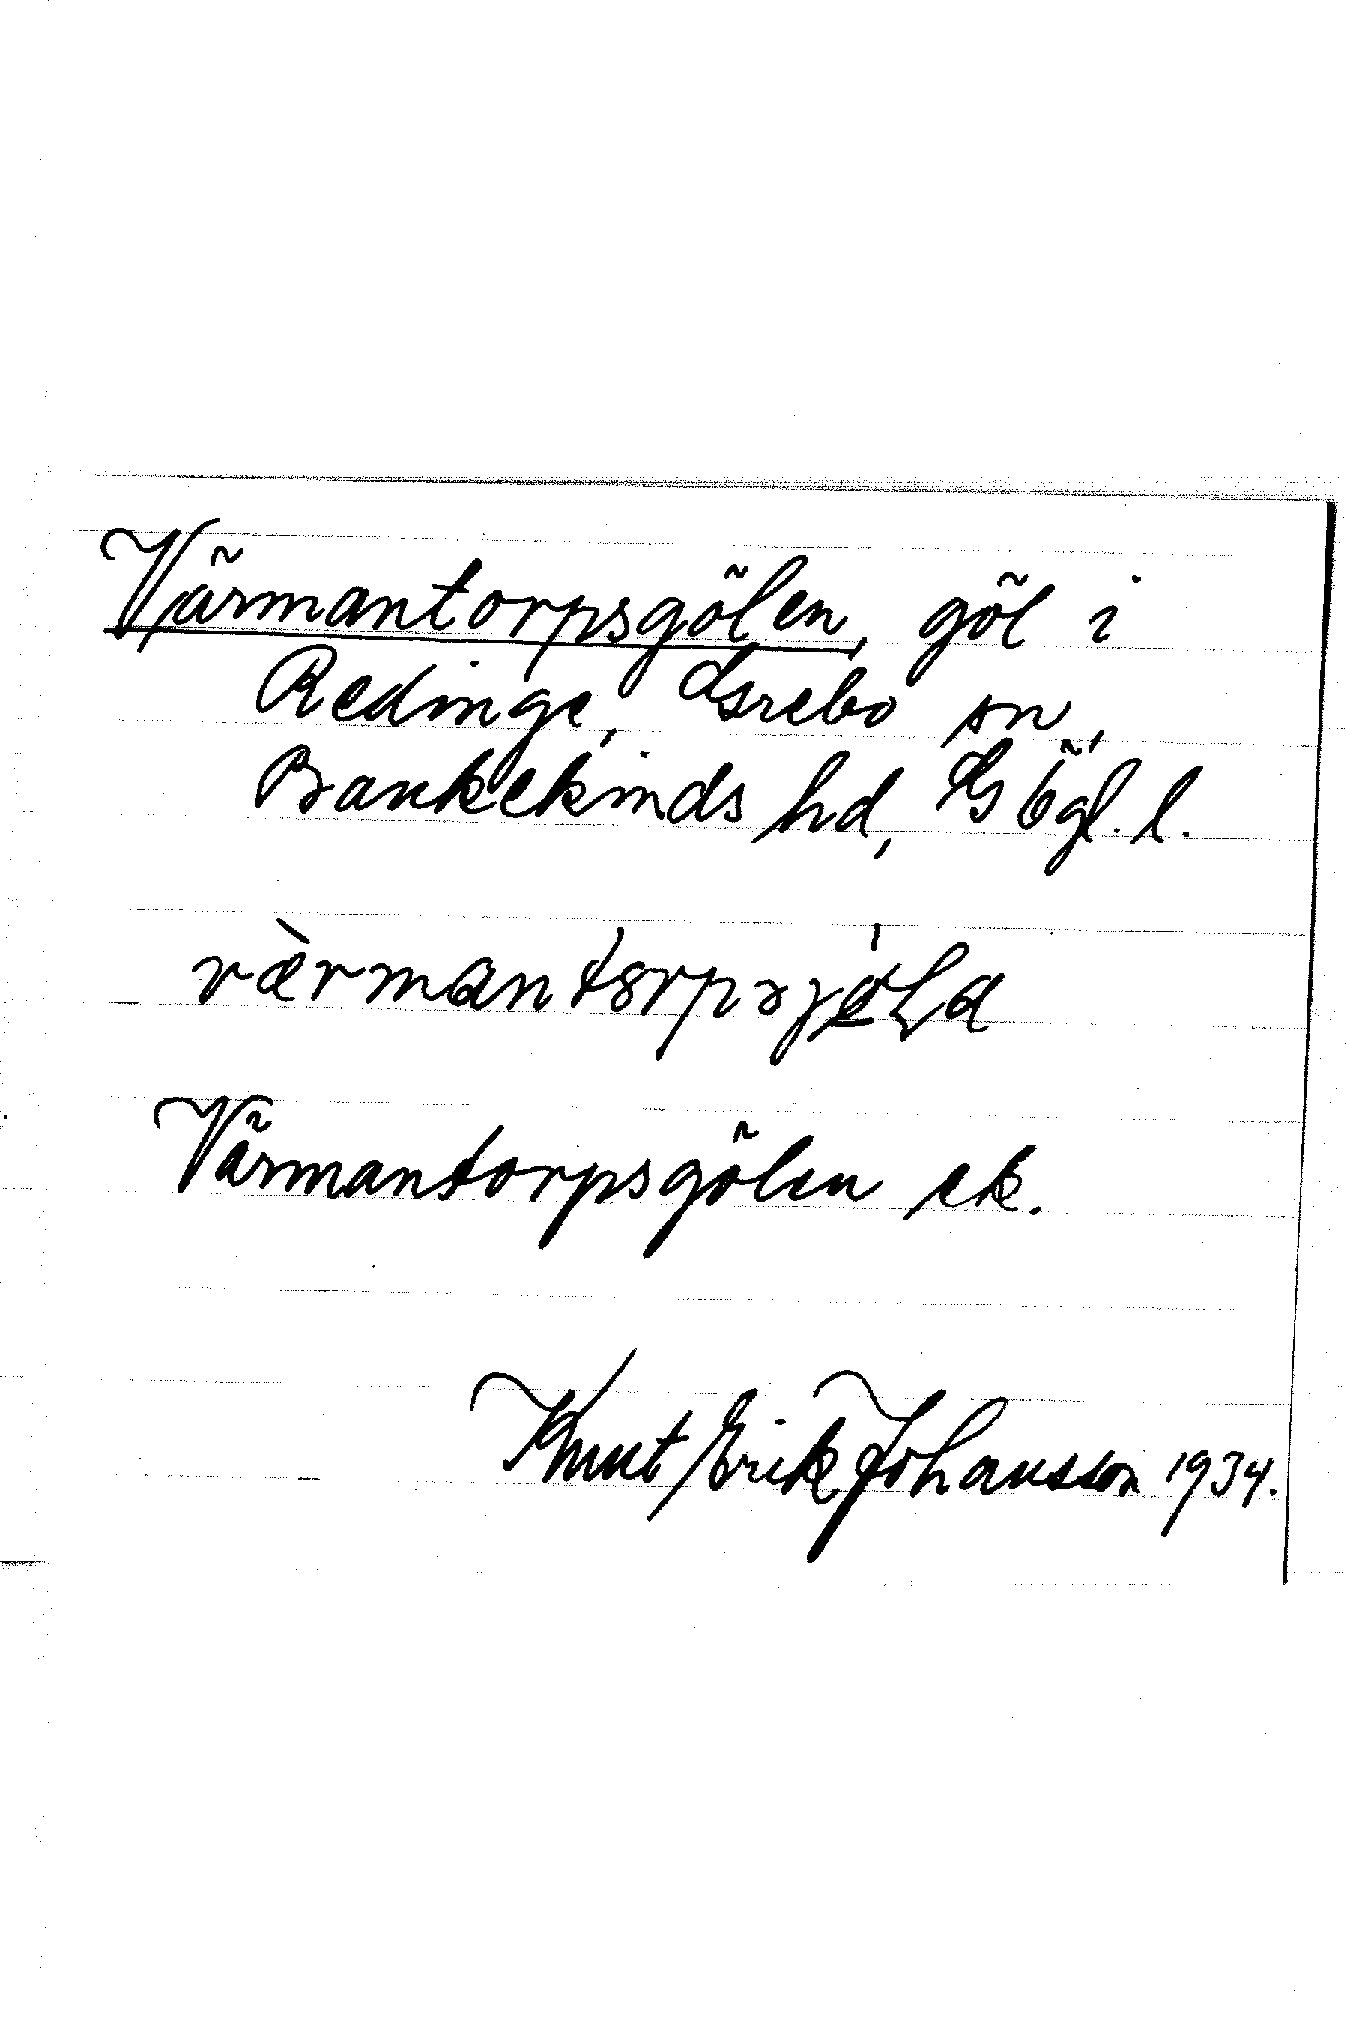 Värmantorpsgölen, göl i
Redinge, Grebo sn,
Bankekinds hd, Ögl. l.
Värmantorpsgölen ek.
Knut Erik Johansson 1934.